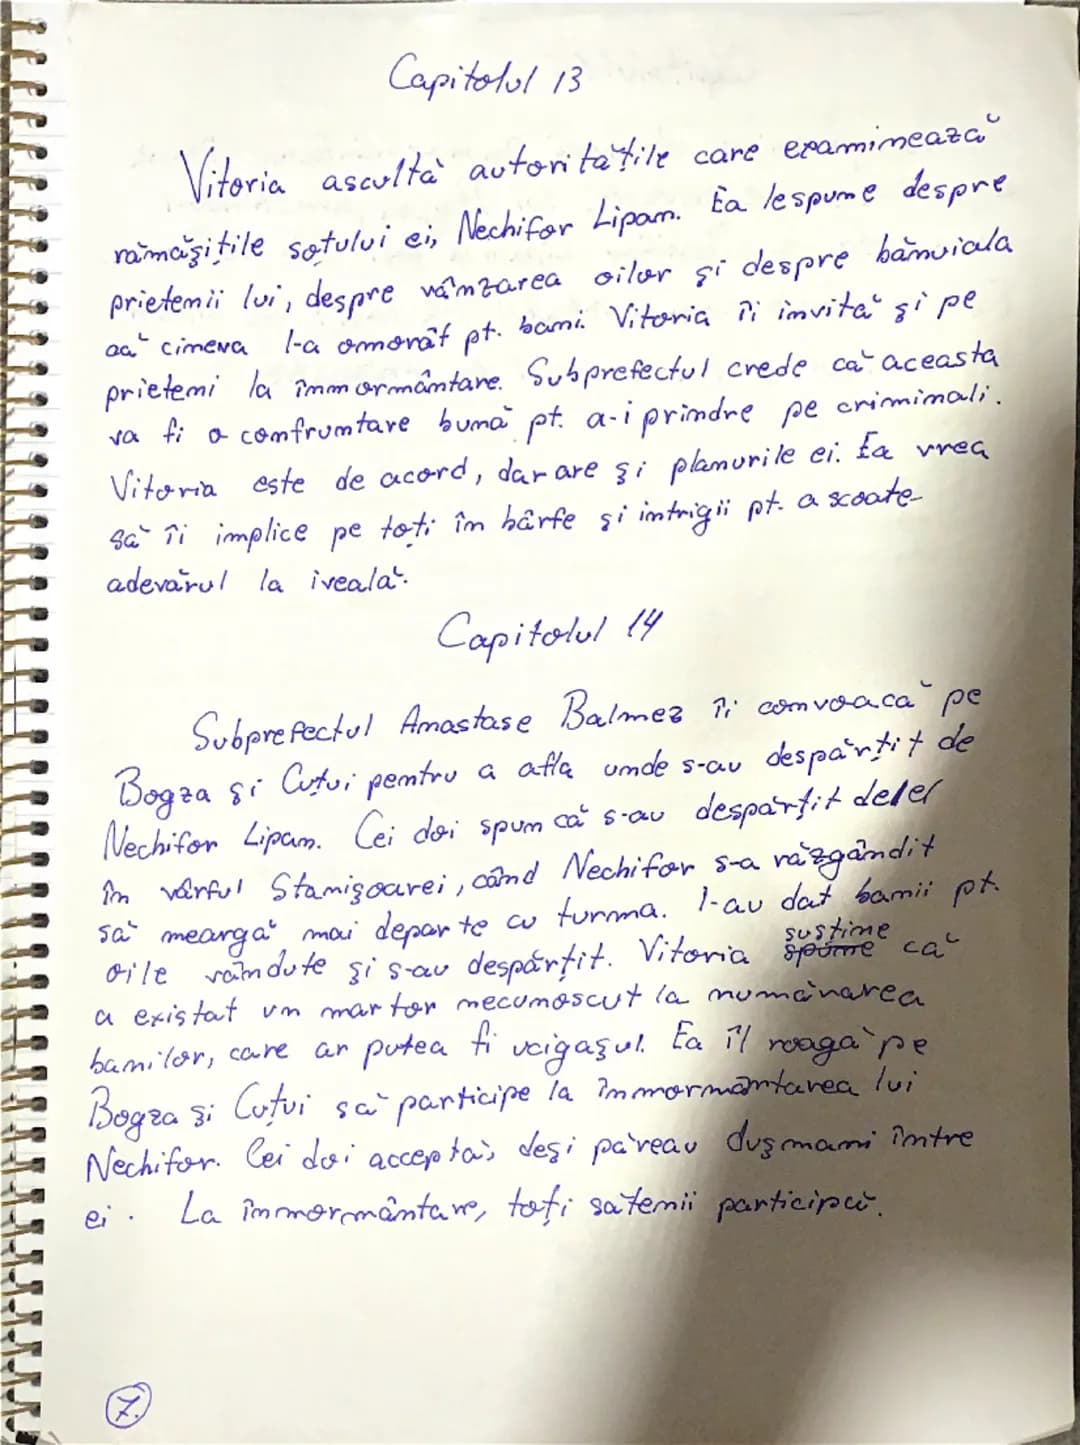 Capitolul 13
Vitoria ascultă autoritățile care examinează
rămășițile soțului ei, Nechifor Lipan. Ea le spune despre
prietenii lui, despre vânzarea oilor și despre bănuiala
că cineva l-a omorât pt. bani. Vitoria îi invită și pe
prieteni la înmormântare. Subprefectul crede că aceasta
va fi o confruntare bună pt. a-i prindre pe criminali.
Vitoria este de acord, dar are și planurile ei. Ea vrea
să îi implice pe toți în bârfe și intrigii pt. a scoate
adevărul la iveală.
Capitolul 14
Subprefectul Anastase Balmez îi convoacă pe
Bogza și Cuțui pentru a afla unde s-au despărțit de
Nechifor Lipan. Cei doi spun că s-au despărțit de el
în vârful Stanișoarei, când Nechifor s-a răzgândit
să meargă mai departe cu turma. I-au dat banii pt.
oile vândute și s-au despărțit. Vitoria spune susține că
a existat un martor necunoscut la numănarea
banilor, care ar putea fi ucigașul. Ea îl roagă pe
Bogza și Cuțui să participe la înmormântarea lui
Nechifor. Cei doi acceptă, deși păreau dușmani între
ei. La înmormântare, toți sătenii participă.
7.